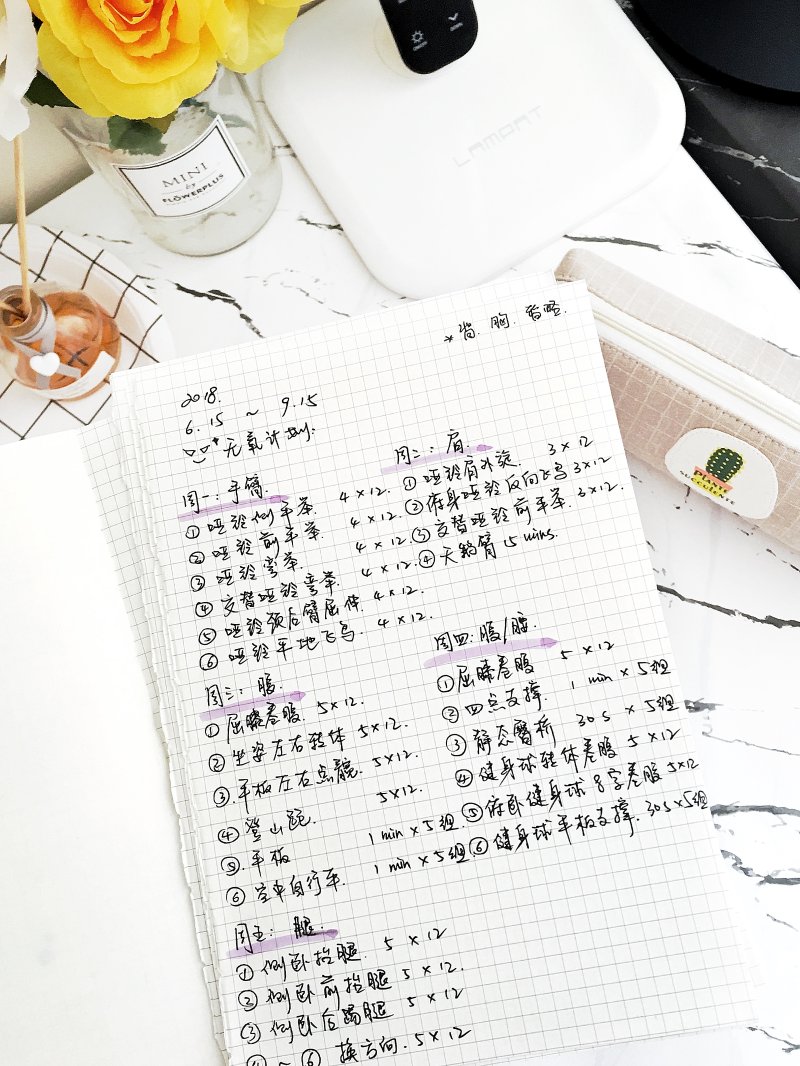 LAMPAT
MINI
by
FLOWERPLUS
PLANTE
SUCCULENTE
* 背. 胸. 暂略.
2018.
6.15 ~ 9.15
无氧计划:
周一: 手臂.
① 哑铃侧平举. 4×12.
② 哑铃前平举. 4×12.
③ 哑铃弯举. 4×12.
④ 交替哑铃弯举. 4×12.
⑤ 哑铃颈后臂屈伸. 4×12.
⑥ 哑铃平地飞鸟. 4×12.
周二: 肩.
① 哑铃肩外旋. 3×12
② 俯身哑铃反向飞鸟 3×12
③ 交替哑铃前平举. 3×12.
④ 天鹅臂 15 mins.
周三: 腹.
① 屈膝卷腹. 5×12.
② 坐姿左右转体 5×12.
③. 平板左右点髋. 5×12.
④ 登山跑. 5×12.
⑤. 平板 1 min × 5组.
⑥ 空中自行车. 1 min × 5组.
周四: 腹/腰.
① 屈膝卷腹 5×12
② 四点支撑. 1 min × 5组
③ 静态臀桥 30s × 5组
④ 健身球转体卷腹 5×12
⑤ 俯卧健身球8字卷腹 5×12
⑥ 健身球平板支撑. 30s×5组
周五: 腿.
① 侧卧抬腿. 5×12
② 侧卧前抬腿 5×12.
③ 侧卧后踢腿 5×12
④ ~ ⑥ 换方向. 5×12